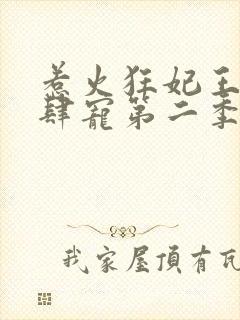 惹火狂妃王
肆寵第二季
我家屋頂有瓦